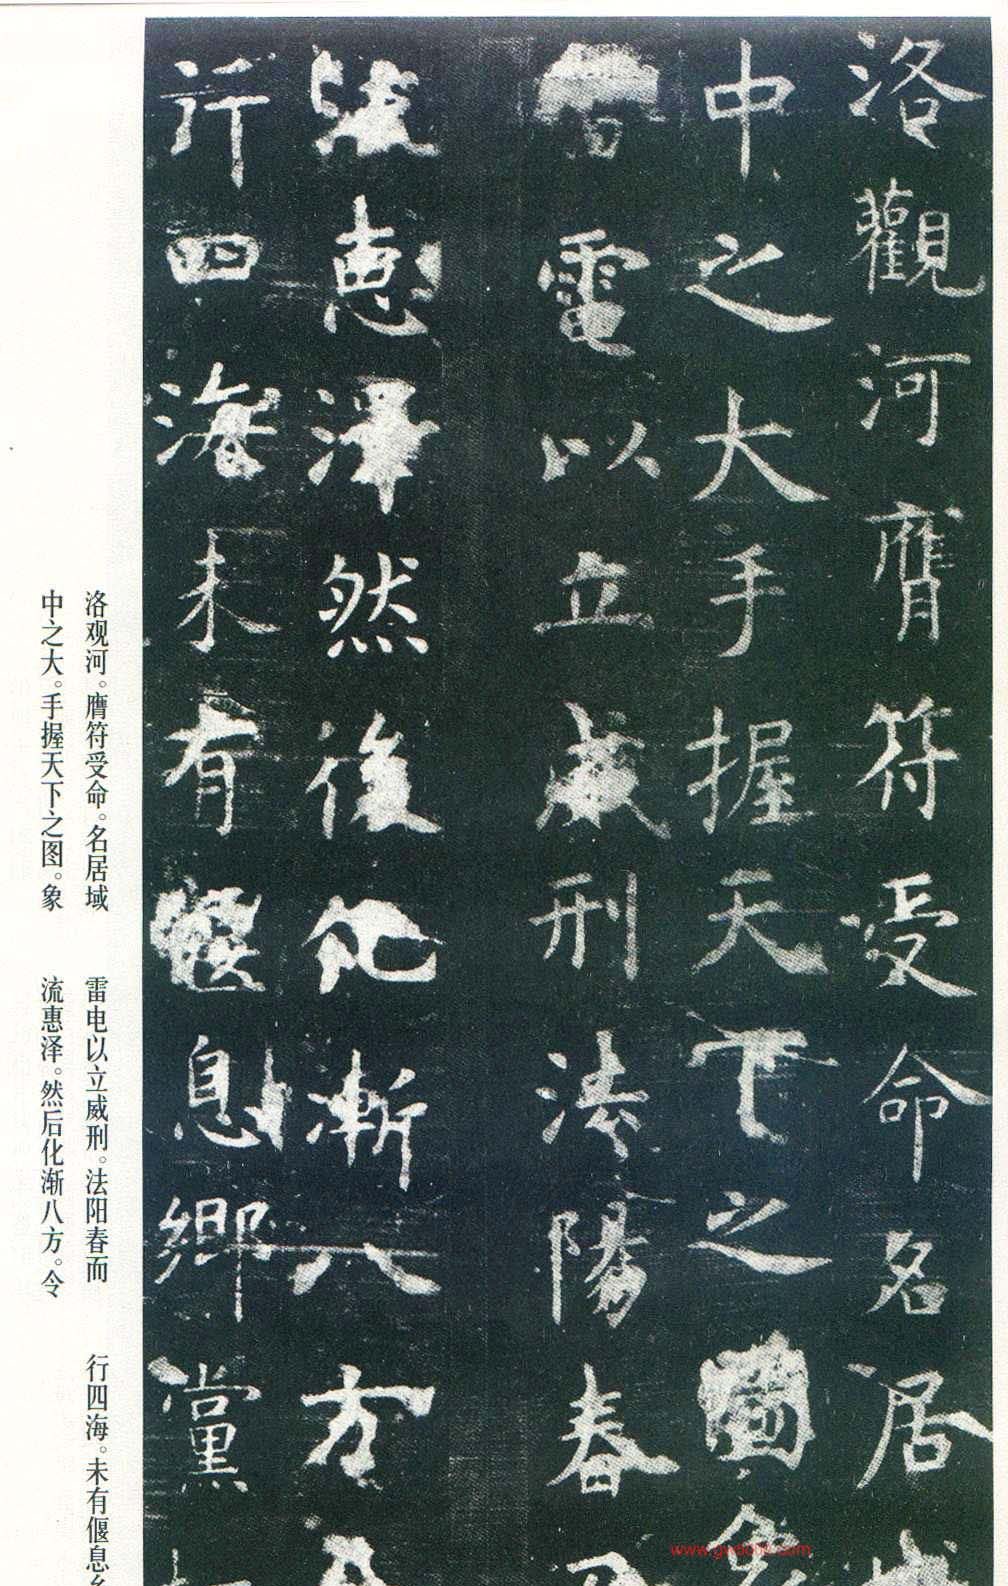 洛觀河膺符受命名居
中之大手握天下之圖象
雷電以立威刑法陽春而
流惠澤然後化漸八方令
行四海未有偃息鄉黨
洛观河。膺符受命。名居域
中之大。手握天下之图。象
雷电以立威刑。法阳春而
流惠泽。然后化渐八方。令
行四海。未有偃息